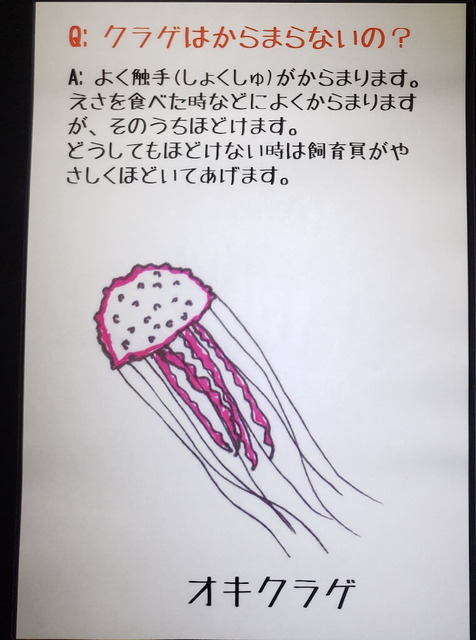 Q: クラゲはからまらないの？
A: よく触手(しょくしゅ)がからまります。
えさを食べた時などによくからまります
が、そのうちほどけます。
どうしてもほどけない時は飼育員がや
さしくほどいてあげます。
オキクラゲ